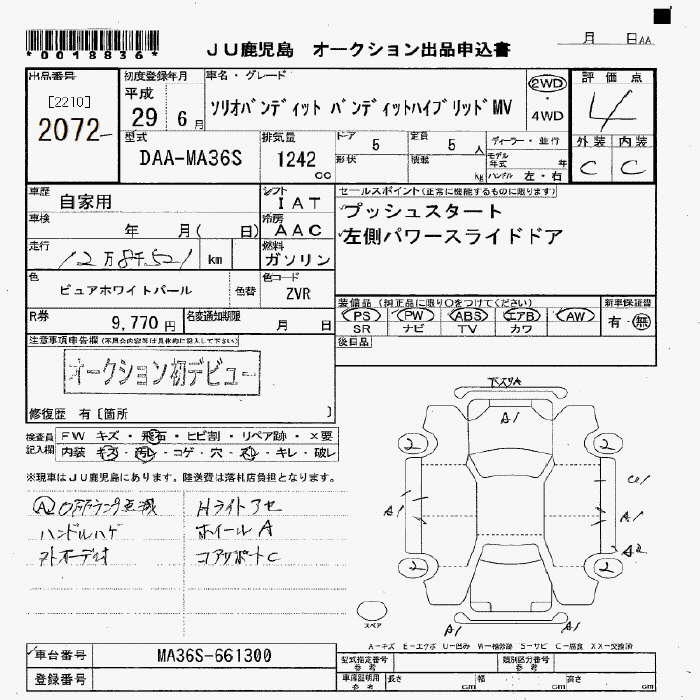 *0018836*
JU鹿児島 オークション出品申込書
月 日AA
出品番号
[2210]
2072
初度登録年月
平成
29 6月
車名・グレード
ソリオバンディット バンディットハイブリッドMV
2WD
・
4WD
評価点
4
外装 内装
C C
型式
DAA-MA36S
排気量
1242
cc
ドア 5
定員 5 人
形状
積載 kg
ディーラー・並行
モデル年式 年
ハンドル 左・右
車歴 自家用
シフト IAT
車検 年 月( 日)
冷房 AAC
走行 12万8千521 km
燃料 ガソリン
色 ピュアホワイトパール 色替
色コード ZVR
R券 9,770円
名変通知期限 月 日
セールスポイント(正常に機能するものに限ります)
プッシュスタート
左側パワースライドドア
装備品(純正品に限り○をつけてください)
新車保証書
PS PW ABS エアB AW
SR ナビ TV カワ
有・無
後日品
注意事項申告欄
オークション初デビュー
修復歴 有[箇所 ]
検査員記入欄
FW キズ・飛石・ヒビ割・リペア跡・×要
内装 キズ・汚レ・コゲ・穴・スレ・キレ・破レ
※現車はJU鹿児島にあります。陸送費は落札店負担となります。
ハンドルハゲ
Hライト
ホイールA
コアサポートC
A1
2 2
A1
A1
A2
2 2
A1 A1
スペア
A-キズ E-エクボ U-凹み W-補修跡 S-サビ C-腐食 XX-交換済
車台番号 MA36S-661300
登録番号
型式指定番号参考
類別区分番号参考
車庫証明用参考
長さ cm 幅 cm 高さ cm